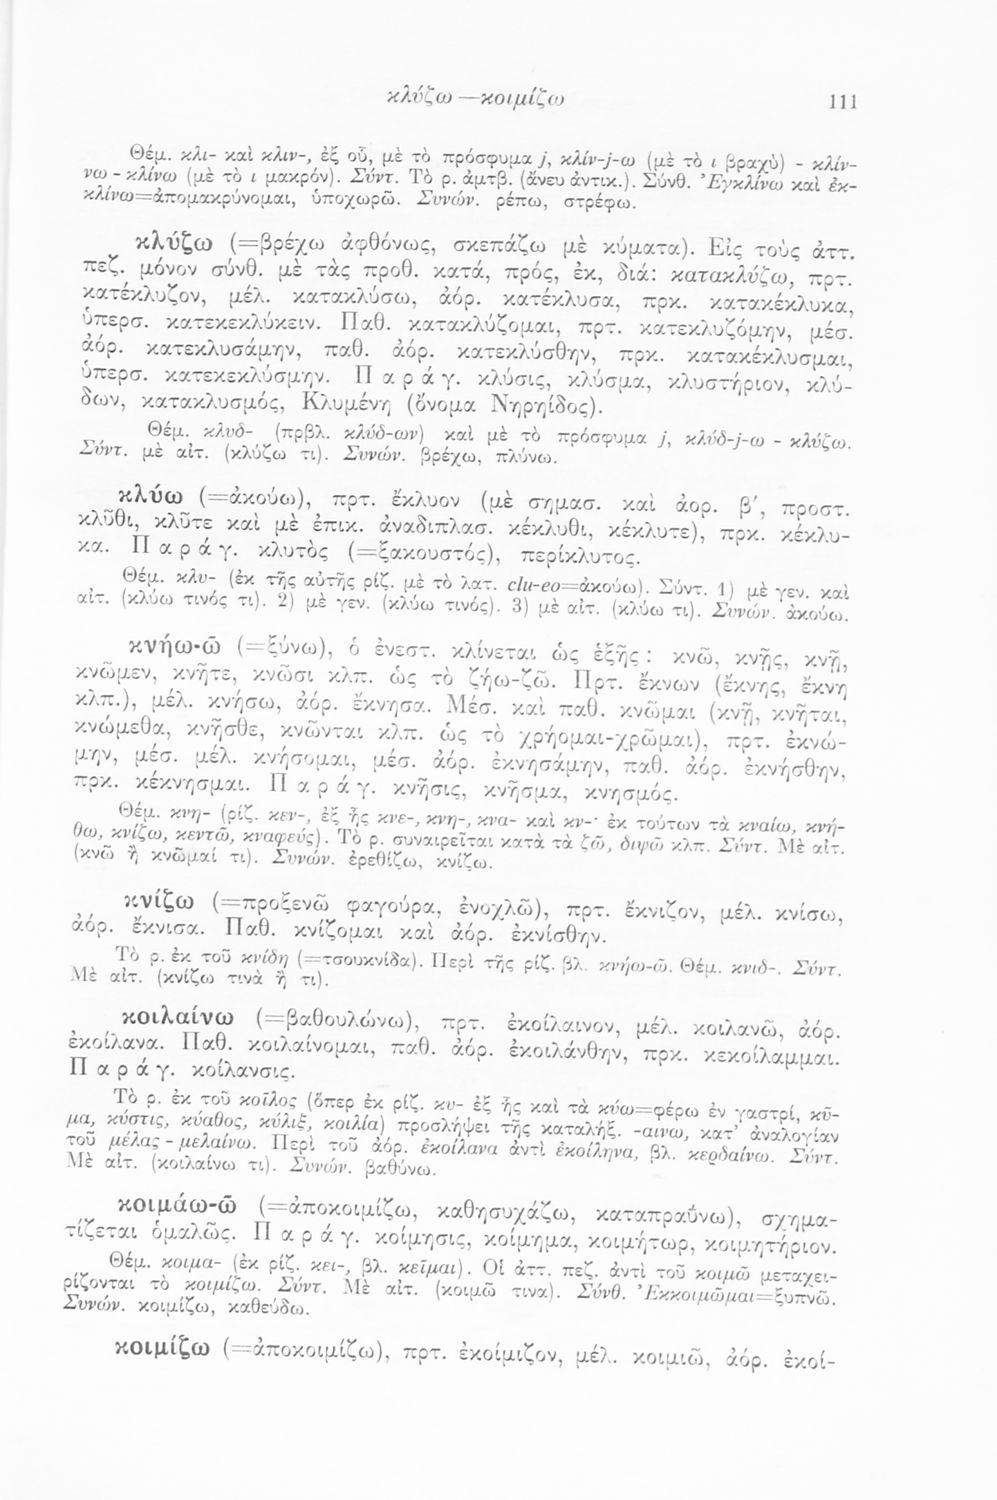 κλύζω —κοιμίζω 111
Θέμ. κλι- καὶ κλιν-, ἐξ οὗ, μὲ τὸ πρόσφυμα j, κλίν-j-ω (μὲ τὸ ι βραχὺ) - κλίν-
νω - κλίνω (μὲ τὸ ι μακρόν). Σύντ. Τὸ ρ. ἀμτβ. (ἄνευ ἀντικ.). Σύνθ. Ἐγκλίνω καὶ ἐκ-
κλίνω=ἀπομακρύνομαι, ὑποχωρῶ. Συνών. ρέπω, στρέφω.
κλύζω (=βρέχω ἀφθόνως, σκεπάζω μὲ κύματα). Εἰς τοὺς ἀττ.
πεζ. μόνον σύνθ. μὲ τὰς προθ. κατά, πρός, ἐκ, διά: κατακλύζω, πρτ.
κατέκλυζον, μέλ. κατακλύσω, ἀόρ. κατέκλυσα, πρκ. κατακέκλυκα,
ὑπερσ. κατεκεκλύκειν. Παθ. κατακλύζομαι, πρτ. κατεκλυζόμην, μέσ.
ἀόρ. κατεκλυσάμην, παθ. ἀόρ. κατεκλύσθην, πρκ. κατακέκλυσμαι,
ὑπερσ. κατεκεκλύσμην. Παράγ. κλύσις, κλύσμα, κλυστήριον, κλύ-
δων, κατακλυσμός, Κλυμένη (ὄνομα Νηρηίδος).
Θέμ. κλυδ- (πρβλ. κλύδ-ων) καὶ μὲ τὸ πρόσφυμα j, κλύδ-j-ω - κλύζω.
Σύντ. μὲ αἰτ. (κλύζω τι). Συνών. βρέχω, πλύνω.
κλύω (=ἀκούω), πρτ. ἔκλυον (μὲ σημασ. καὶ ἀορ. β', προστ.
κλῦθι, κλῦτε καὶ μὲ ἐπικ. ἀναδιπλασ. κέκλυθι, κέκλυτε), πρκ. κέκλυ-
κα. Παράγ. κλυτὸς (=ξακουστός), περίκλυτος.
Θέμ. κλυ- (ἐκ τῆς αὐτῆς ρίζ. μὲ τὸ λατ. clu-eo=ἀκούω). Σύντ. 1) μὲ γεν. καὶ
αἰτ. (κλύω τινός τι). 2) μὲ γεν. (κλύω τινός). 3) μὲ αἰτ. (κλύω τι). Συνών. ἀκούω.
κνήω-ῶ (=ξύνω), ὁ ἐνεστ. κλίνεται ὡς ἑξῆς: κνῶ, κνῇς, κνῇ,
κνῶμεν, κνῆτε, κνῶσι κλπ. ὡς τὸ ζήω-ζῶ. Πρτ. ἔκνων (ἔκνης, ἔκνη
κλπ.), μέλ. κνήσω, ἀόρ. ἔκνησα. Μέσ. καὶ παθ. κνῶμαι (κνῇ, κνῆται,
κνώμεθα, κνῆσθε, κνῶνται κλπ. ὡς τὸ χρήομαι-χρῶμαι), πρτ. ἐκνώ-
μην, μέσ. μέλ. κνήσομαι, μέσ. ἀόρ. ἐκνησάμην, παθ. ἀόρ. ἐκνήσθην,
πρκ. κέκνησμαι. Παράγ. κνῆσις, κνῆσμα, κνησμός.
Θέμ. κνη- (ρίζ. κεν-, ἐξ ἧς κνε-, κνη-, κνα- καὶ κν-· ἐκ τούτων τὰ κναίω, κνή-
θω, κνίζω, κεντῶ, κναφεύς). Τὸ ρ. συναιρεῖται κατὰ τὰ ζῶ, διψῶ κλπ. Σύντ. Μὲ αἰτ.
(κνῶ ἢ κνῶμαί τι). Συνών. ἐρεθίζω, κνίζω.
κνίζω (=προξενῶ φαγούρα, ἐνοχλῶ), πρτ. ἔκνιζον, μέλ. κνίσω,
ἀόρ. ἔκνισα. Παθ. κνίζομαι καὶ ἀόρ. ἐκνίσθην.
Τὸ ρ. ἐκ τοῦ κνίδη (=τσουκνίδα). Περὶ τῆς ρίζ. βλ. κνήω-ῶ. Θέμ. κνιδ-. Σύντ.
Μὲ αἰτ. (κνίζω τινὰ ἤ τι).
κοιλαίνω (=βαθουλώνω), πρτ. ἐκοίλαινον, μέλ. κοιλανῶ, ἀόρ.
ἐκοίλανα. Παθ. κοιλαίνομαι, παθ. ἀόρ. ἐκοιλάνθην, πρκ. κεκοίλαμμαι.
Παράγ. κοίλανσις.
Τὸ ρ. ἐκ τοῦ κοῖλος (ὅπερ ἐκ ρίζ. κυ- ἐξ ἧς καὶ τὰ κύω=φέρω ἐν γαστρί, κῦ-
μα, κύστις, κύαθος, κύλιξ, κοιλία) προσλήψει τῆς καταλήξ. -αινω, κατ' ἀναλογίαν
τοῦ μέλας - μελαίνω. Περὶ τοῦ ἀόρ. ἐκοίλανα ἀντὶ ἐκοίληνα, βλ. κερδαίνω. Σύντ.
Μὲ αἰτ. (κοιλαίνω τι). Συνών. βαθύνω.
κοιμάω-ῶ (=ἀποκοιμίζω, καθησυχάζω, καταπραΰνω), σχημα-
τίζεται ὁμαλῶς. Παράγ. κοίμησις, κοίμημα, κοιμήτωρ, κοιμητήριον.
Θέμ. κοιμα- (ἐκ ρίζ. κει-, βλ. κεῖμαι). Οἱ ἀττ. πεζ. ἀντὶ τοῦ κοιμῶ μεταχει-
ρίζονται τὸ κοιμίζω. Σύντ. Μὲ αἰτ. (κοιμῶ τινα). Σύνθ. Ἐκκοιμῶμαι=ξυπνῶ.
Συνών. κοιμίζω, καθεύδω.
κοιμίζω (=ἀποκοιμίζω), πρτ. ἐκοίμιζον, μέλ. κοιμιῶ, ἀόρ. ἐκοί-